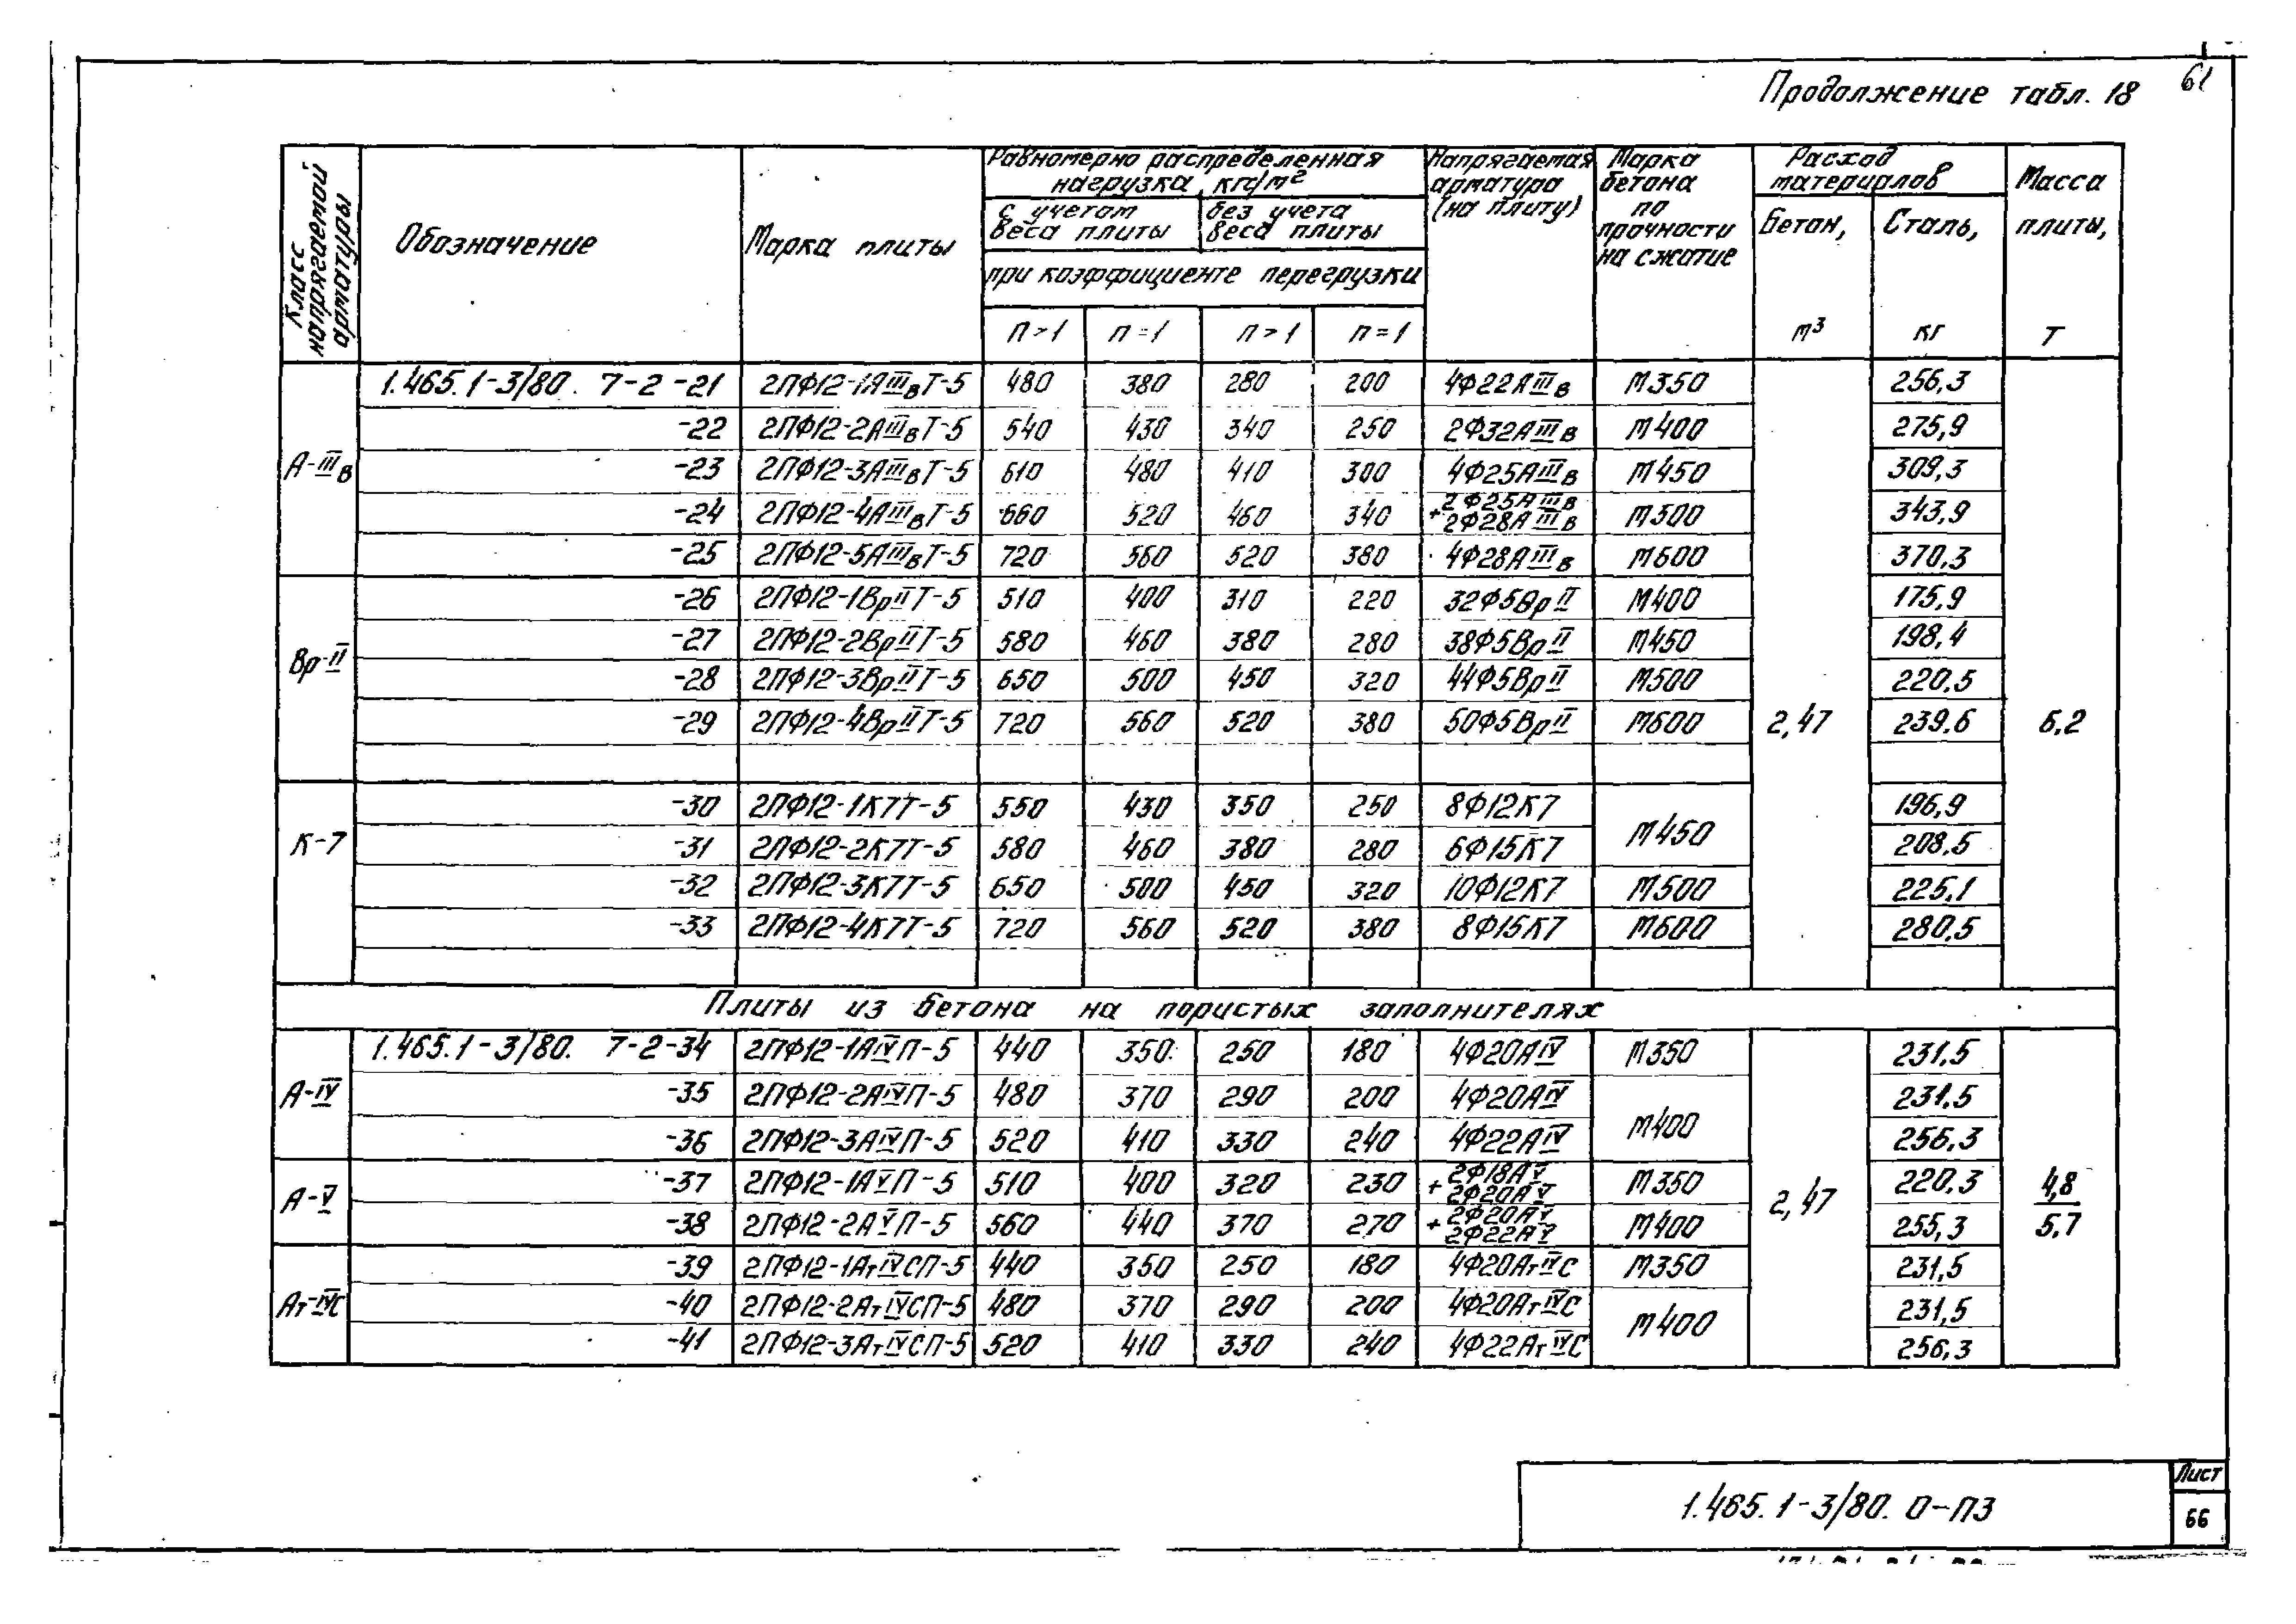 Продолжение табл. 18
61
Класс напрягаемой арматуры
Обозначение
Марка плиты
Равномерно распределенная нагрузка, кгс/м²
с учетом веса плиты
без учета веса плиты
при коэффициенте перегрузки
n > 1 n = 1 n > 1 n = 1
Напрягаемая арматура (на плиту)
Марка бетона по прочности на сжатие
Расход материалов
Бетон, м³
Сталь, кг
Масса плиты, т
А-IIIв
1.465.1-3/80. 7-2 -21 2ПФ12-1АIIIвТ-5 480 380 280 200 4Ф22АIIIв М350 256,3
-22 2ПФ12-2АIIIвТ-5 540 430 340 250 2Ф32АIIIв М400 275,9
-23 2ПФ12-3АIIIвТ-5 610 480 410 300 4Ф25АIIIв М450 309,3
-24 2ПФ12-4АIIIвТ-5 660 520 460 340 2Ф25АIIIв + 2Ф28АIIIв М500 343,9
-25 2ПФ12-5АIIIвТ-5 720 560 520 380 4Ф28АIIIв М600 370,3
Вр-II
-26 2ПФ12-1ВрIIТ-5 510 400 310 220 32Ф5ВрII М400 175,9
-27 2ПФ12-2ВрIIТ-5 580 460 380 280 38Ф5ВрII М450 198,4
-28 2ПФ12-3ВрIIТ-5 650 500 450 320 44Ф5ВрII М500 220,5
-29 2ПФ12-4ВрIIТ-5 720 560 520 380 50Ф5ВрII М600 2,47 239,6 6,2
К-7
-30 2ПФ12-1К7Т-5 550 430 350 250 8Ф12К7 М450 196,9
-31 2ПФ12-2К7Т-5 580 460 380 280 6Ф15К7 208,5
-32 2ПФ12-3К7Т-5 650 500 450 320 10Ф12К7 М500 225,1
-33 2ПФ12-4К7Т-5 720 560 520 380 8Ф15К7 М600 280,5
Плиты из бетона на пористых заполнителях
А-IV
1.465.1-3/80. 7-2-34 2ПФ12-1АIVП-5 440 350 250 180 4Ф20АIV М350 231,5
-35 2ПФ12-2АIVП-5 480 370 290 200 4Ф20АIV М400 231,5
-36 2ПФ12-3АIVП-5 520 410 330 240 4Ф22АIV 256,3
А-V
-37 2ПФ12-1АVП-5 510 400 320 230 2Ф18АV + 2Ф20АV М350 2,47 220,3 4,8
-38 2ПФ12-2АVП-5 560 440 370 270 2Ф20АV + 2Ф22АV М400 255,3 5,7
Ат-IVС
-39 2ПФ12-1АтIVСП-5 440 350 250 180 4Ф20АтIVС М350 231,5
-40 2ПФ12-2АтIVСП-5 480 370 290 200 4Ф20АтIVС М400 231,5
-41 2ПФ12-3АтIVСП-5 520 410 330 240 4Ф22АтIVС 256,3
1.465.1-3/80. 0-ПЗ
Лист
66